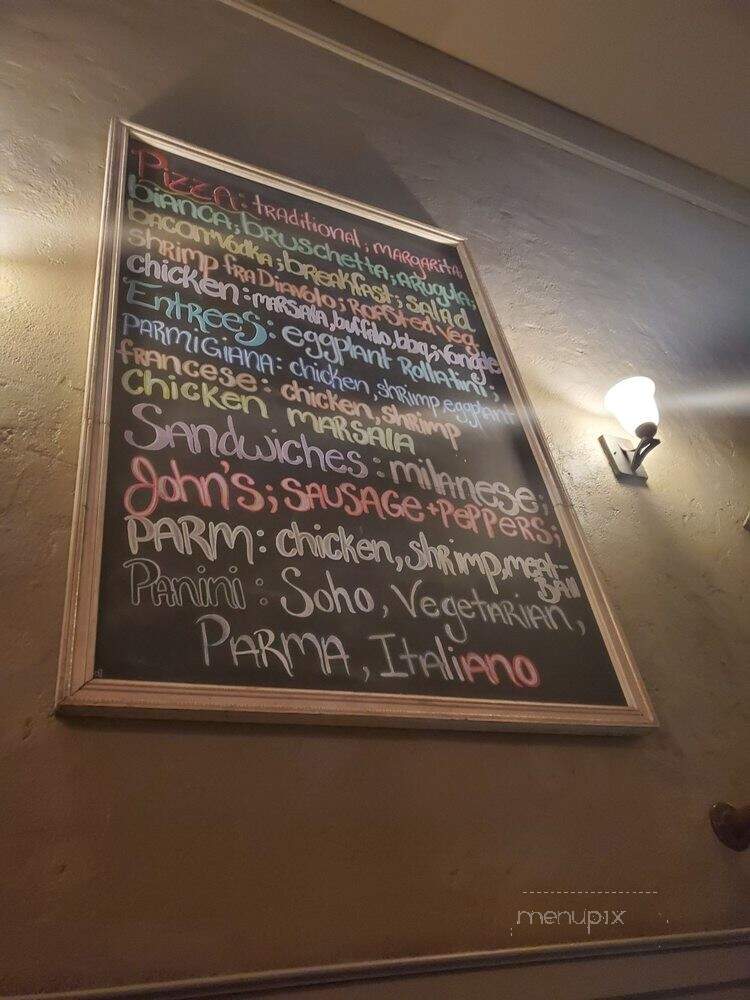 Pizza: traditional; margarita;
bianca; bruschetta; arugula;
bacon+vodka; breakfast; salad
shrimp fra Diavolo; Roasted veg
chicken: marsala, buffalo, bbq, vongole
Entrees: eggplant Rollatini;
Parmigiana: chicken, shrimp, eggplant
francese: chicken, shrimp
chicken marsala
Sandwiches: milanese;
John's; Sausage+Peppers;
Parm: chicken, shrimp, meat-
Ball
Panini: Soho, Vegetarian,
Parma, Italiano
menupix